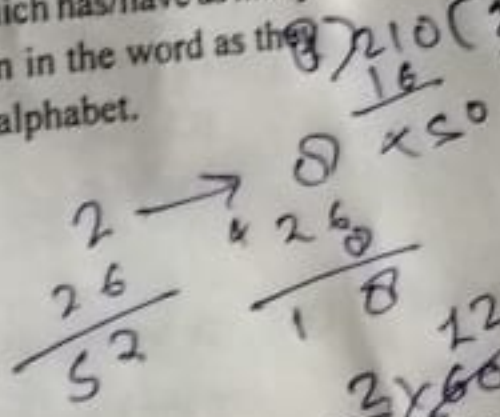 n in the word as the
alphabet.
8)210(
16
×50
2 → 8
26
× 26
52
1 8
12
2×60